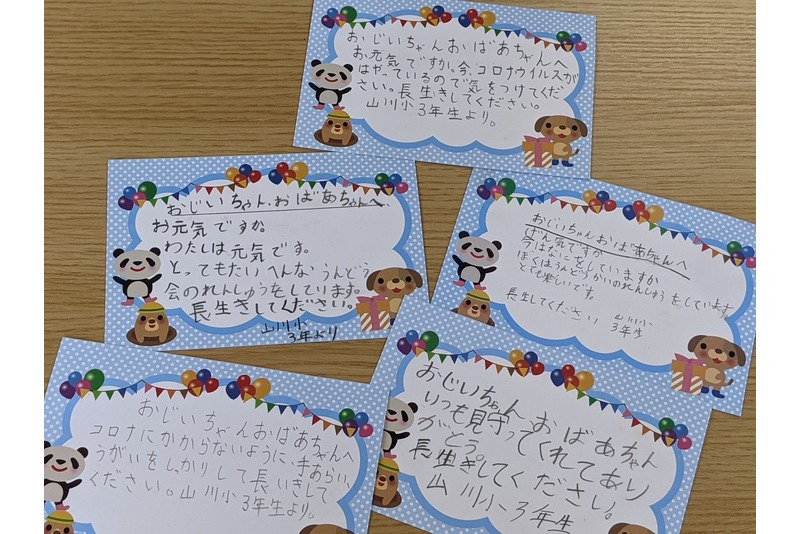 おじいちゃんおばあちゃんへ
お元気ですか。今、コロナウイルスが
はやっているので気をつけてくだ
さい。長生きしてください。
山川小3年生より。
おじいちゃん・おばあちゃんへ
お元気ですか。
わたしは元気です。
とってもたいへんな うんどう
会のれんしゅうをしています。
長生きしてください。
山川小
3年より
おじいちゃんおばあちゃんへ
げん気ですか
今はなにをしていますか
ぼくはうんどうかいのれんしゅうをしています
とても楽しいです。
長生してください
山川小
3年生
おじいちゃんおばあちゃんへ
コロナにかからないように、手あらい、
うがいをしっかりして長いきして
ください。山川小3年生より。
おじいちゃんおばあちゃん
いつも見守ってくれてあり
がとう。
長生きしてください。
山川小3年生